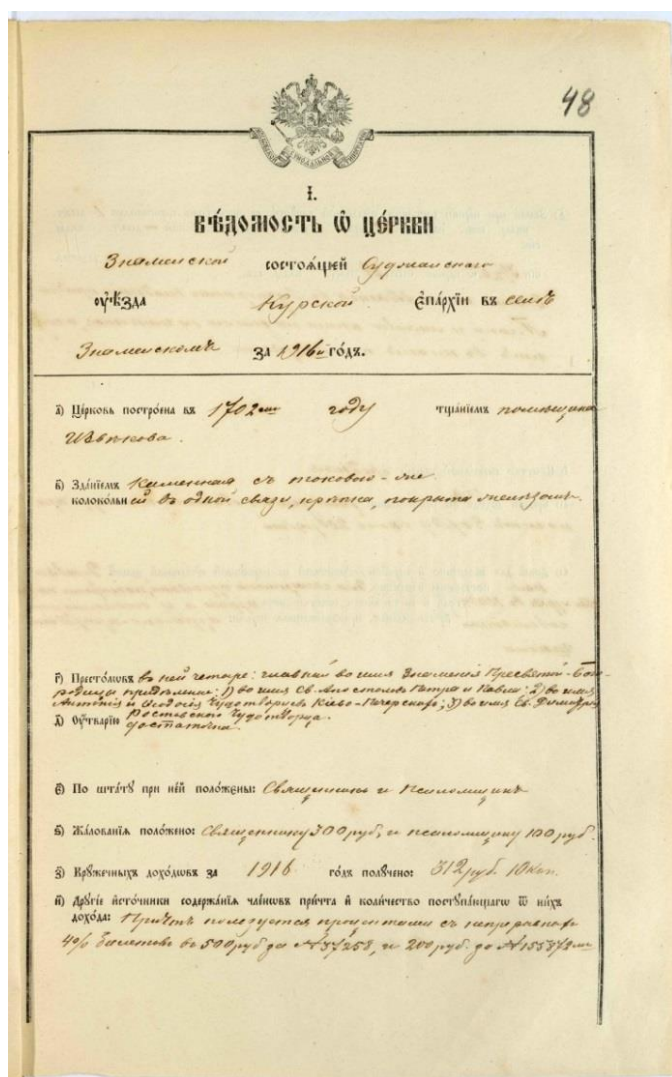 48
І.
ВѢ́ДОМОСТЬ Ѡ҆ ЦЕ́РКВИ
Знаменской состоѧ́щей Суджанскаго
ᲂу҆ѣ́зда Курской є҆па́рхїи въ селѣ
Знаменскомъ за 1916й го́дъ.
а҃) Це́рковь постро́ена въ 1702мъ году тща́нїемъ помѣщика
Извѣкова.
в҃) Зда́нїемъ Каменная съ таковою-же
колоко́льней въ одной связи, крѣпка, покрыта желѣзомъ.
г҃) Престо́лѡвъ въ ней четыре: главный во имя Знаменія Пресвятой Бого-
родицы придѣльные: 1) во имя Св. Апостоловъ Петра и Павла; 2) во имя
Антонія и Ѳеодосія Чудотворцевъ Кіево-Печерскихъ; 3) во имя Св. Димитрія
Ростовскаго Чудотворца.
д҃) Оу҆́тварїю достаточна.
є҃) По шта́тꙋ при не́й поло́жены: Священникъ и Псаломщикъ
ѕ҃) Жа́лованїѧ поло́жено: Священнику 300 руб, и псаломщику 100 руб.
з҃) Крꙋ́жечныхъ дохо́дѡвъ за 1916 го́дъ полꙋ́чено: 312 руб. 10 коп.
и҃) Дрꙋгі́е и҆сто́чники содержа́нїѧ чле́нѡвъ при́чта и҆ коли́чество постꙋпа́ющагѡ ѿ ни́хъ
дохо́да: Причтъ пользуется процентами съ
4% билетовъ въ 500 руб за № 37258, и 200 руб. за №